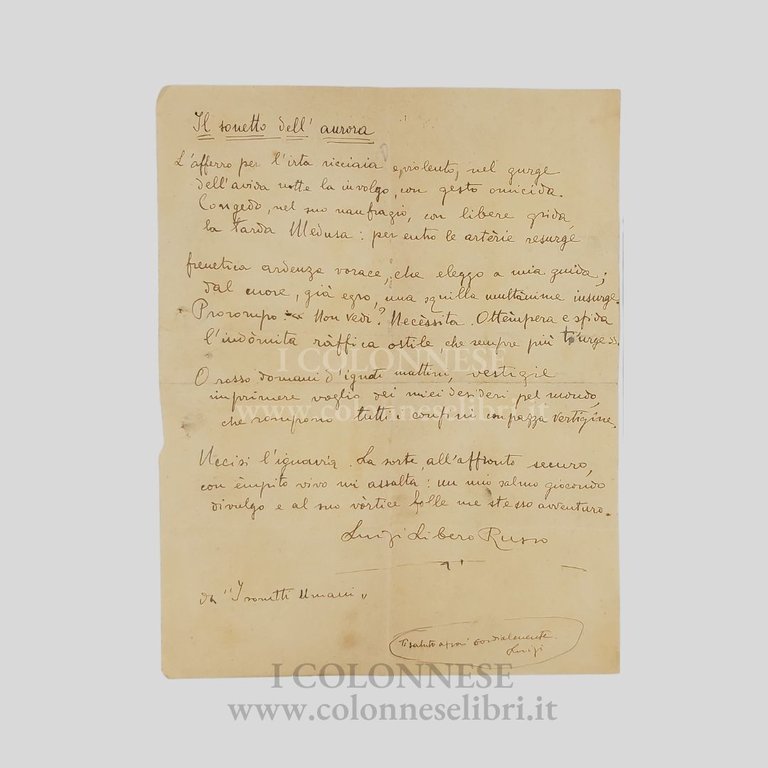 Il sonetto dell'aurora
L'afferro per l'irta ricciaia e violento, nel gurge
dell'avida notte la involgo, con gesto omicida.
Congedo, nel suo naufragio, con libere grida,
la tarda Medusa: per entro le artèrie resurge
frenetica ardenza vorace, che eleggo a mia guida;
dal cuore, già egro, una squilla multanime insurge.
Prorompo: Non vedi? Necèssita. Ottèmpera e sfida
l'indòmita ràffica ostile che sempre più t'urge.
O rosso domani d'ignoti mattini, vestigie
imprimere voglio dei miei desideri pel mondo,
che rompono tutti i confini con pazza vertigine.
Uccisi l'ignavia. La sorte, all'affronto securo,
con èmpito vivo mi assalta: un mio salmo giocondo
divulgo e al suo vòrtice folle me stesso avventuro.
Luigi Libero Russo
da "I sonetti umani"
Ti saluto cordialmente
Luigi
I COLONNESE
www.colonneselibri.it
I COLONNESE
www.colonneselibri.it